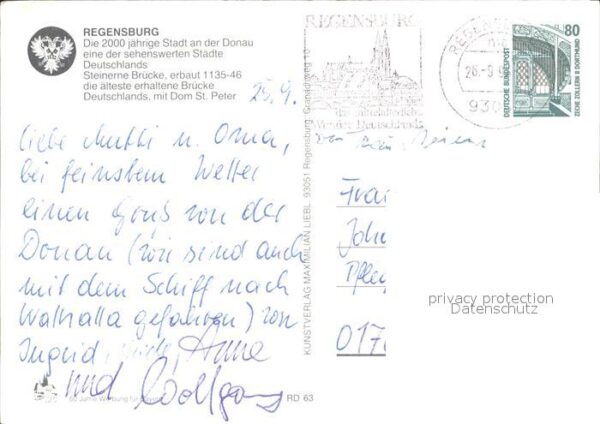 REGENSBURG
Die 2000 jährige Stadt an der Donau
eine der sehenswerten Städte
Deutschlands
Steinerne Brücke, erbaut 1135-46
die älteste erhaltene Brücke
Deutschlands, mit Dom St. Peter
25.9.
Liebe Mutti u. Oma,
bei feinstem Wetter
einen Gruß von der
Donau (wir sind auch
mit dem Schiff nach
Walhalla gefahren) von
Ingrid, Anne
und Wolfgang
KUNSTVERLAG MAXIMILIAN LIEBL · 93051 Regensburg
RD 63
REGENSBURG
Deutschlands
26.-9.
930
80
DEUTSCHE BUNDESPOST
ZECHE ZOLLERN II DORTMUND
Frau
Joh
Pfle
017
privacy protection
Datenschutz